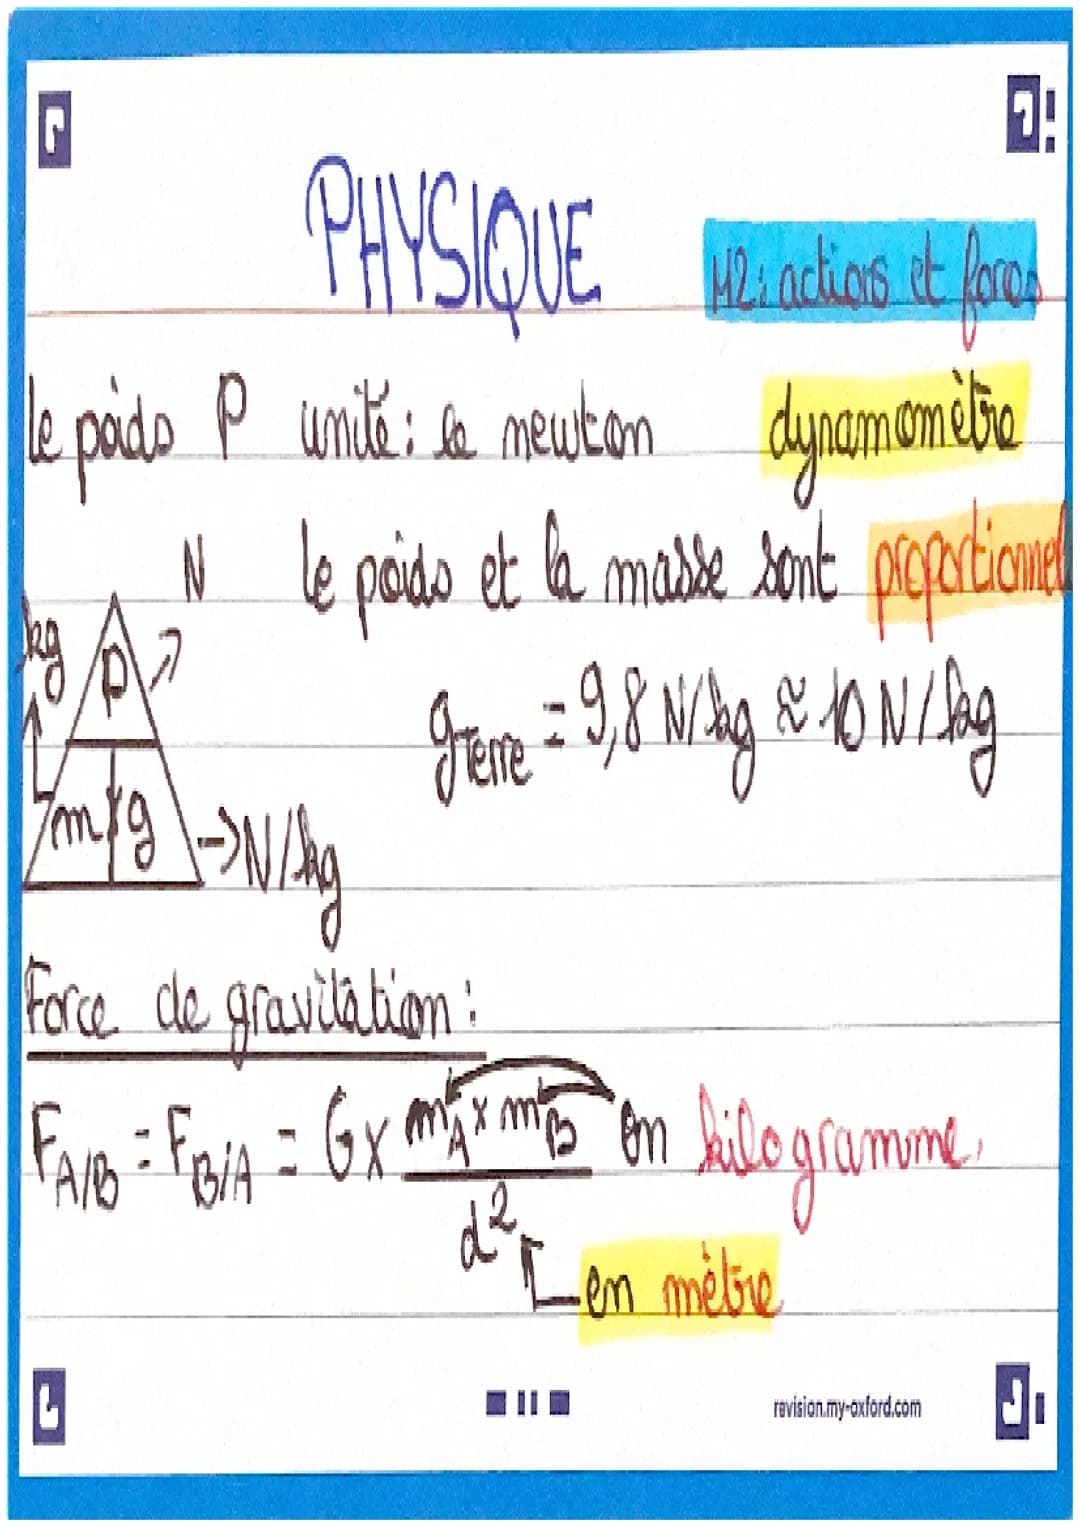 PHYSIQUE
M2: actions et forces
le poids P unité: le newton dynamomètre
N le poids et la masse sont proportionnel
kg
P
gTerre = 9,8 N/kg ≈ 10 N/kg
m x g -> N/kg
Force de gravitation:
FA/B = FB/A = G x mA x mB en kilogramme.
d²
en mètre
revision.my-oxford.com